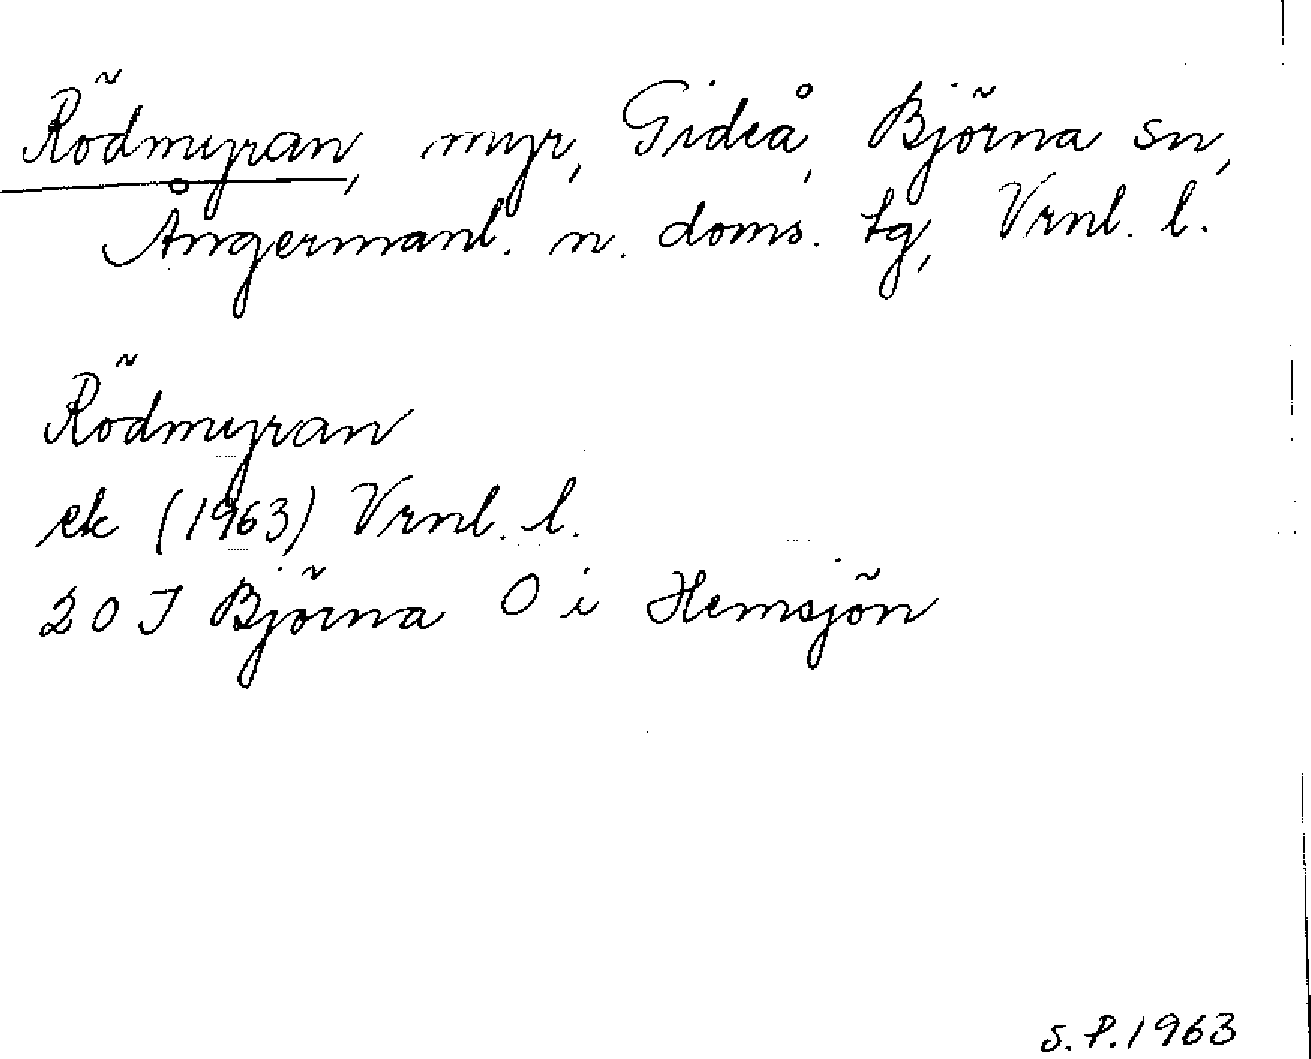 Rödmyran, myr, Gideå, Björna sn,
Ångermanl. n. doms. tg, Vrnl. l.
Rödmyran
ek (1963) Vrnl. l.
20 J Björna O i Hemsjön
S. P. 1963